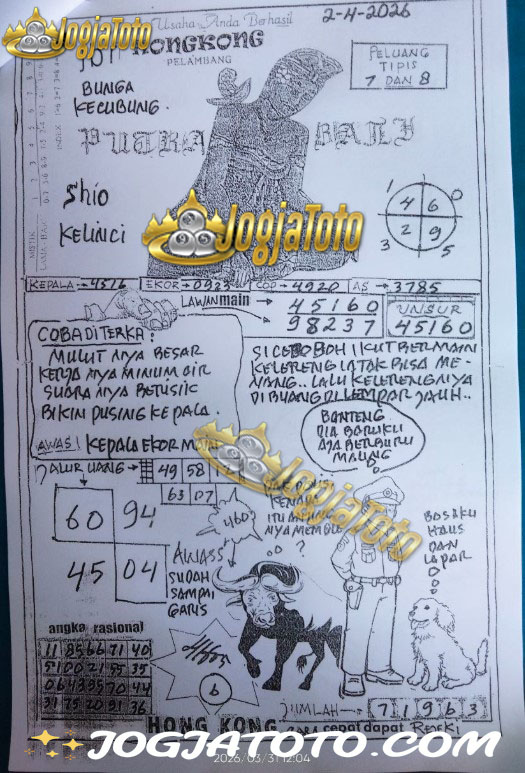 JogjaToto
Usaha Anda Berhasil
2-4-2026
HONGKONG
PELAMBANG
PELUANG
TIPIS
7 DAN 8
BUNGA
KECUBUNG.
PUTRA BALI
Shio
KELINCI
1 0
4 6
2 9
3 5
JogjaToto
KEPALA → 4516 EKOR → 0923 COP → 4920 AS → 3785
LAWAN main → 45160
98237
UNSUR
45160
COBA DITERKA:
MULUT NYA BESAR
KERJA NYA MINUM AIR
SUARA NYA BERISIK
BIKIN PUSING KEPALA.
AWAS! KEPALA EKOR
SI CEBOBOH IKUT BERMAIN
KELERENG TATAK BISA ME-
NANG.. LALU KELERENGNYA
DI BUANG DI LEMPAR JAUH..
BANTENG
DIA
BERBURU
MALING
JALUR UANG → 49 58
63 07
60 94
45 04
4160
JogjaToto
AWASS
SUDAH
SAMPAI
GARIS
KENAPA
ITU
?
BOSAKU
HAUS
DAN
LAPAR
angka rasional
11 85 66 71 40
51 00 21 95 35
06 43 95 70 44
31 75 20 91 36
6
JUMLAH → 7 1 9 6 3
HONG KONG
cepat dapat Rezeki
JOGJATOTO.COM
2026/03/31 12:04